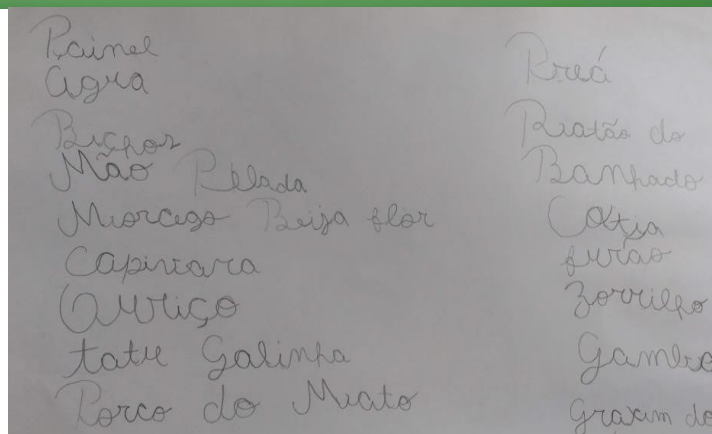 Painel
Agra
Bichos
Mão Pelada
Morcego Beija flor
Capivara
Ouriço
tatu Galinha
Porco do Mato
Preá
Ratão do
Banhado
Cotia
furão
Zorrilho
Gamba
Graxim do